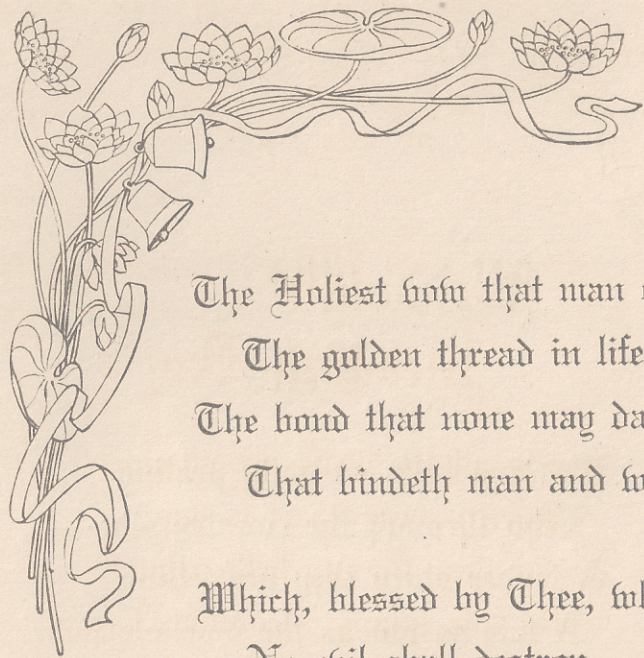 The Holiest vow that man
The golden thread in life
The bond that none may da
That bindeth man and w
Which, blessed by Thee, wh
No evil shall destroy